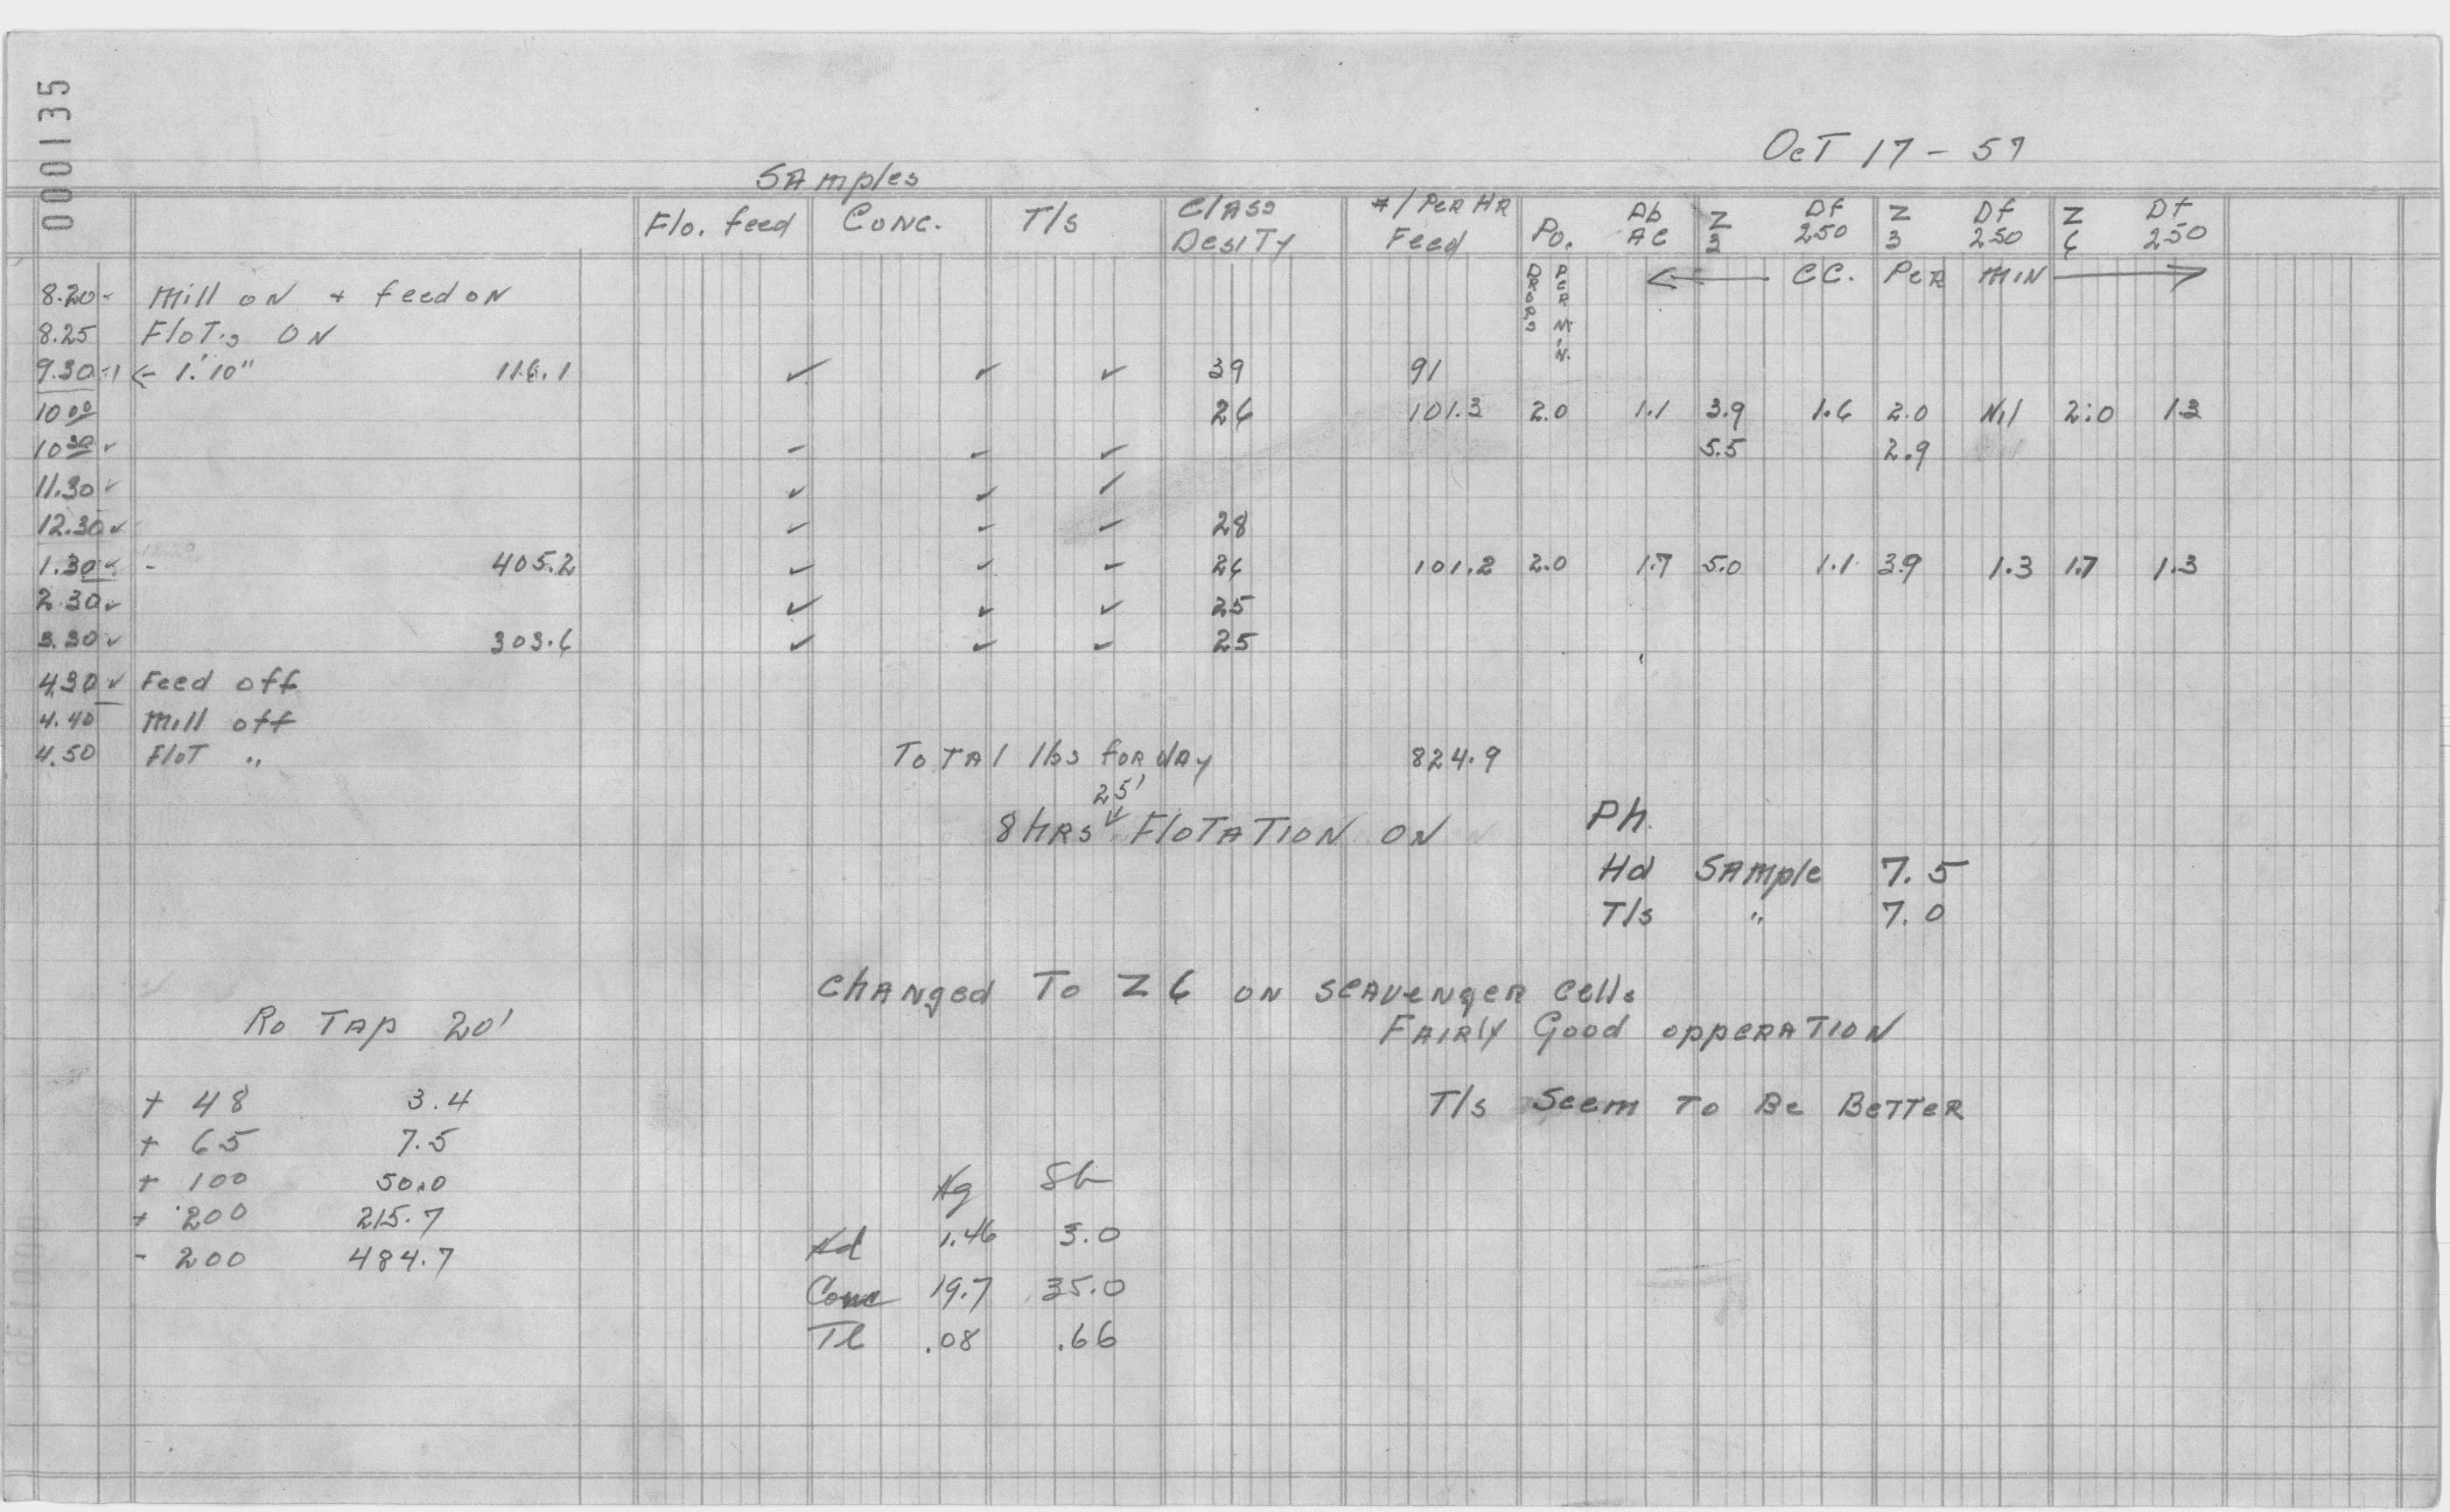 000135
OcT 17 - 57
SAmples
Flo. feed CONC. T/s ClAss DesiTy #/PeR HR Feed Po. Pb Ac Z 3 Df 250 Z 3 Df 250 Z 6 Df 250
DROPS PER MIN. ← CC. PeR MIN →
8.20 Mill oN + feed oN
8.25 FloT.s ON
9.30 ← 1.'10" 116.1 ✓ ✓ ✓ 39 91
10 00 26 101.3 2.0 1.1 3.9 1.6 2.0 Nil 2.0 1.3
10 30 ✓ - - ✓ 5.5 2.9
11.30 ✓ ✓ ✓ ✓
12.30 ✓ ✓ ✓ ✓ 28
1.30 ✓ - 405.2 ✓ ✓ ✓ 26 101.2 2.0 1.7 5.0 1.1 3.9 1.3 1.7 1.3
2.30 ✓ ✓ ✓ ✓ 25
3.30 ✓ 303.6 ✓ ✓ ✓ 25
4.30 ✓ Feed off
4.40 Mill off
4.50 FloT "
ToTAl lbs foR dAy 824.9
25'
8 HRs FloTATION ON
Ph.
Hd SAmple 7.5
T/s " 7.0
ChANged To Z 6 oN scAveNgeR Cells
FAIRly Good oppeRATION
T/s Seem To Be BeTTeR
Ro TAp 20'
+ 48 3.4
+ 65 7.5
+ 100 50.0
+ 200 215.7
- 200 484.7
Ag Sb
Hd 1.46 3.0
Conc 19.7 35.0
Tl .08 .66